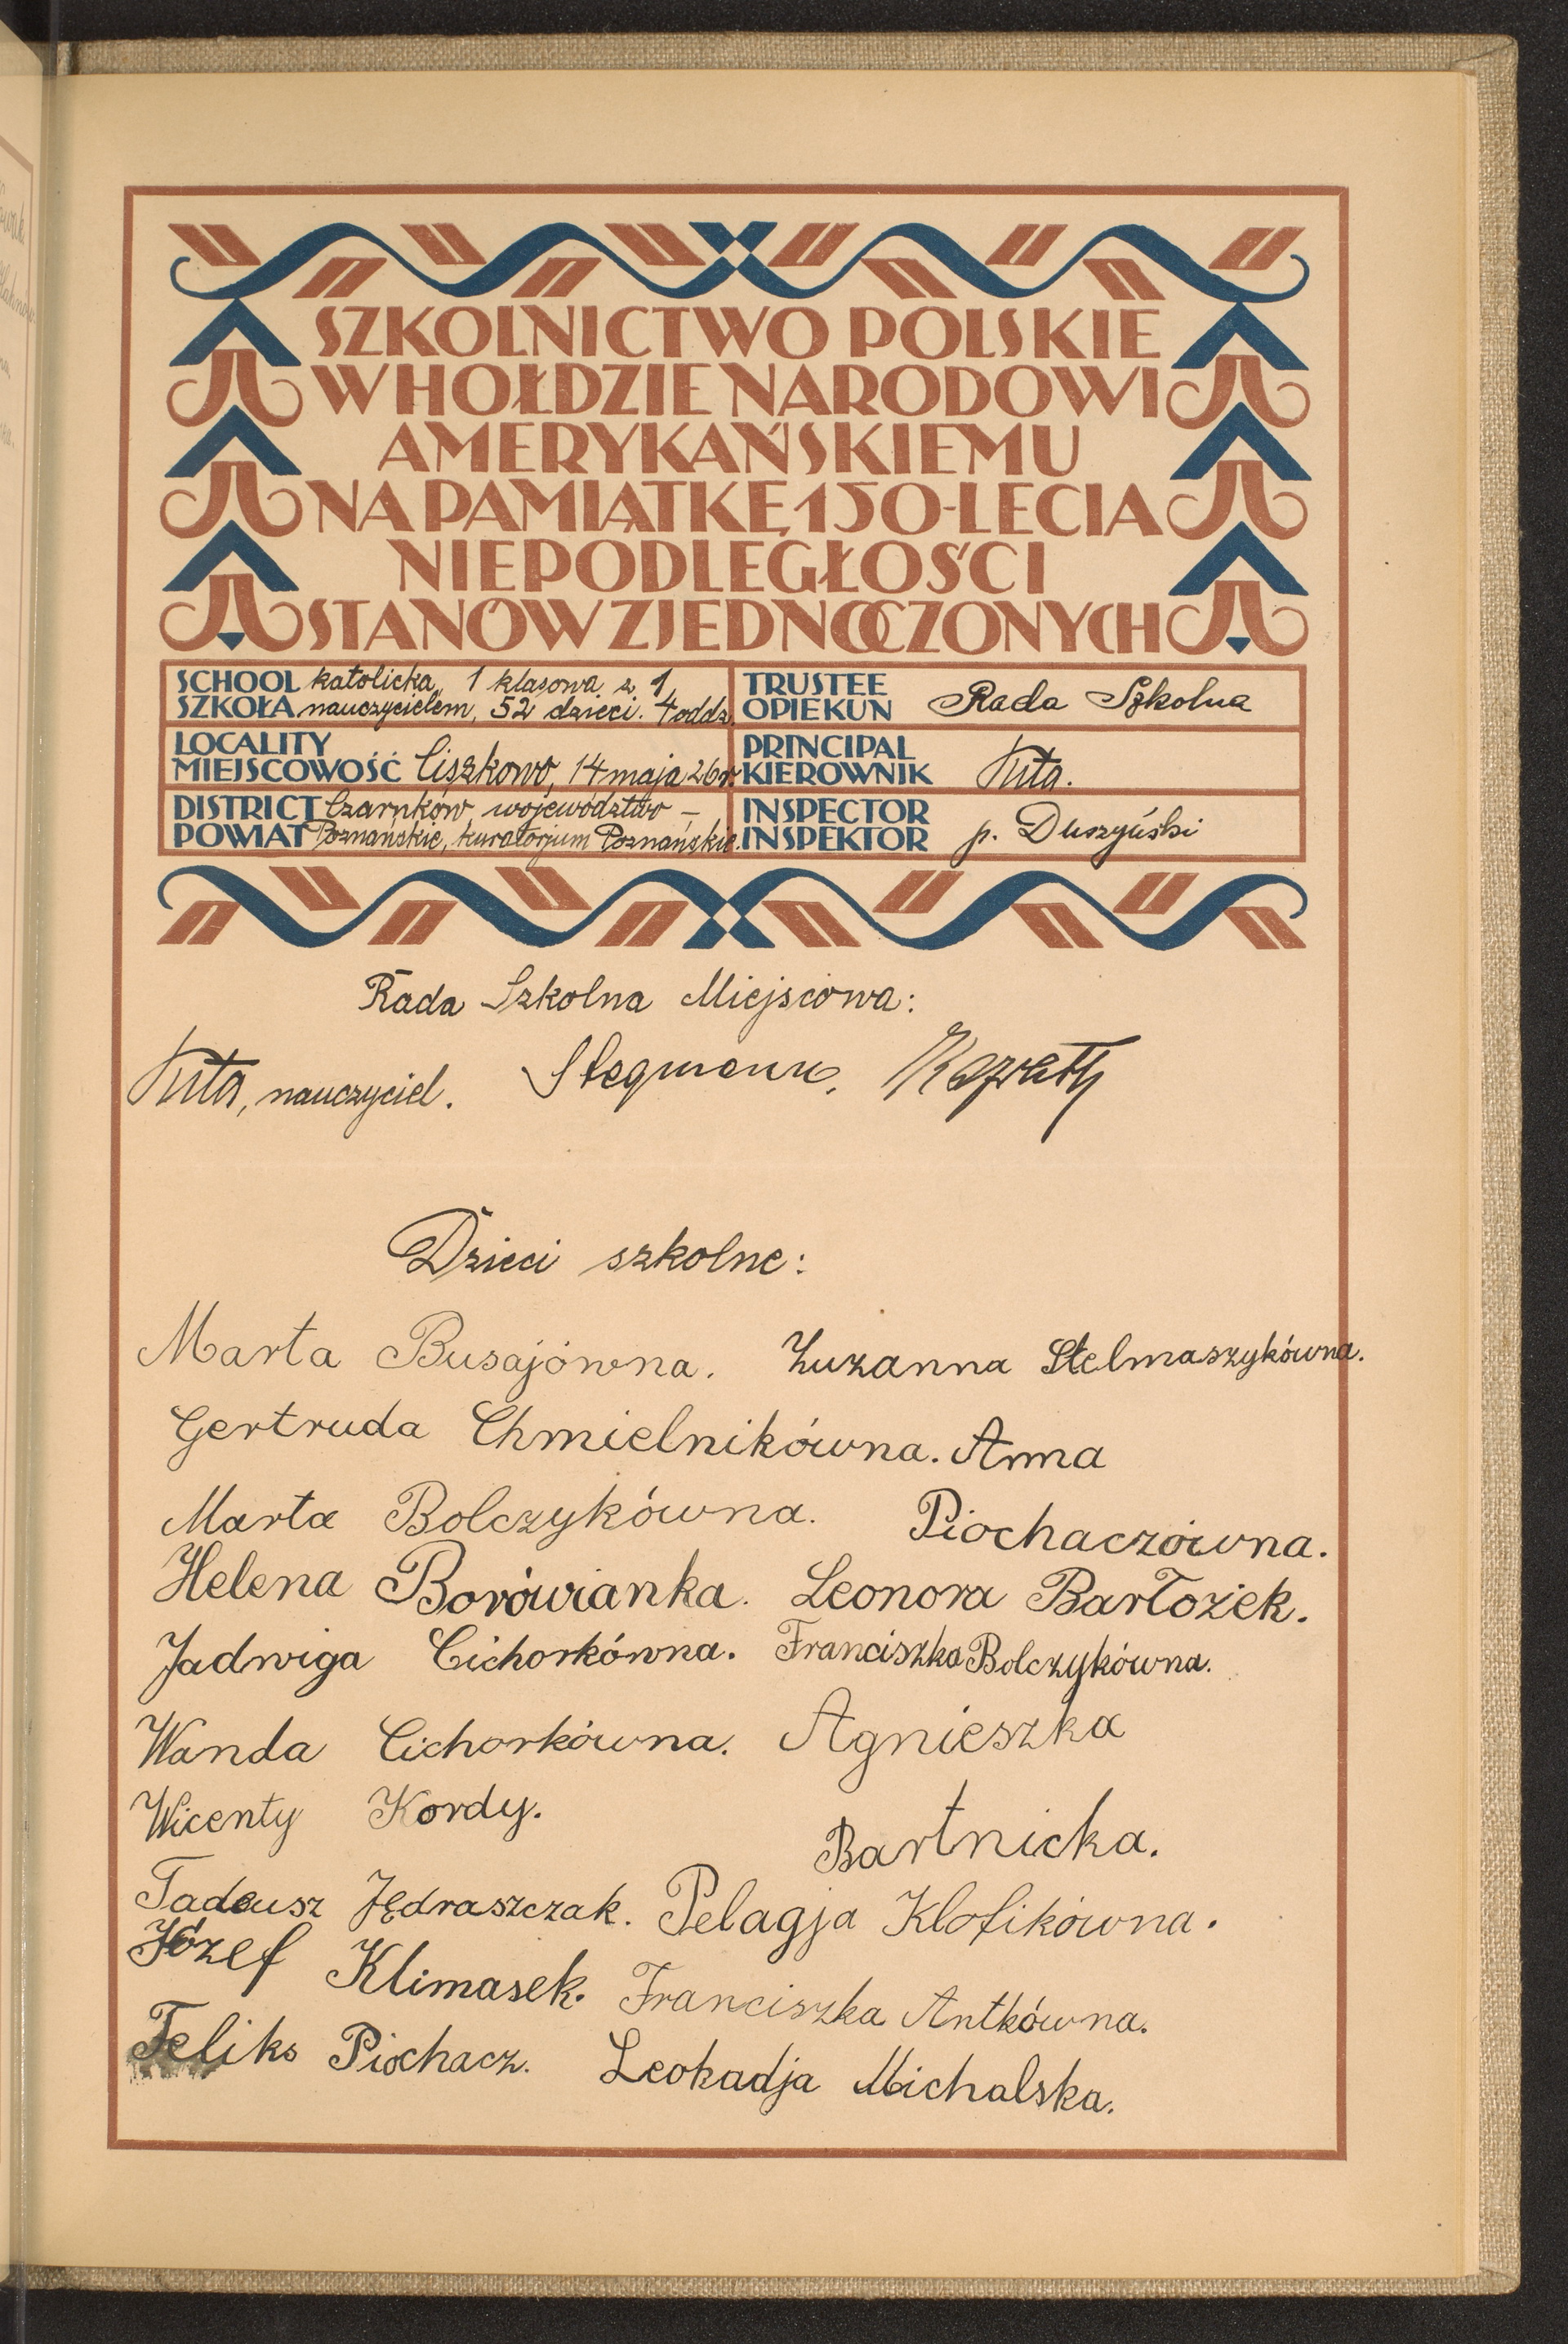 SZKOLNICTWO POLSKIE
W HOŁDZIE NARODOWI
AMERYKAŃSKIEMU
NA PAMIĄTKĘ 150-LECIA
NIEPODLEGŁOŚCI
STANÓW ZJEDNOCZONYCH
SCHOOL SZKOŁA katolicka, 1 klasowa z 1
nauczycielem, 52 dzieci. 4 oddz.
TRUSTEE OPIEKUN Rada Szkolna
LOCALITY MIEJSCOWOŚĆ Ciszkowo, 14 maja 26r.
PRINCIPAL KIEROWNIK Kuta.
DISTRICT POWIAT Czarnków, województwo –
Poznańskie, kuratorjum Poznańskie.
INSPECTOR INSPEKTOR p. Duszyński
Rada Szkolna Miejscowa:
Kuta, nauczyciel. Stegmann,
Dzieci szkolne:
Marta Busajówna. Zuzanna Stelmaszykówna.
Gertruda Chmielnikówna. Anna
Marta Bolczykówna. Piochaczówna.
Helena Borówianka. Leonora Bartożek.
Jadwiga Cichorkówna. Franciszka Bolczykówna.
Wanda Cichorkówna. Agnieszka
Wicenty Kordy. Bartnicka.
Tadeusz Jędraszczak. Pelagja Klofikówna.
Józef Klimasek. Franciszka Antkówna.
Feliks Piochacz. Leokadja Michalska.